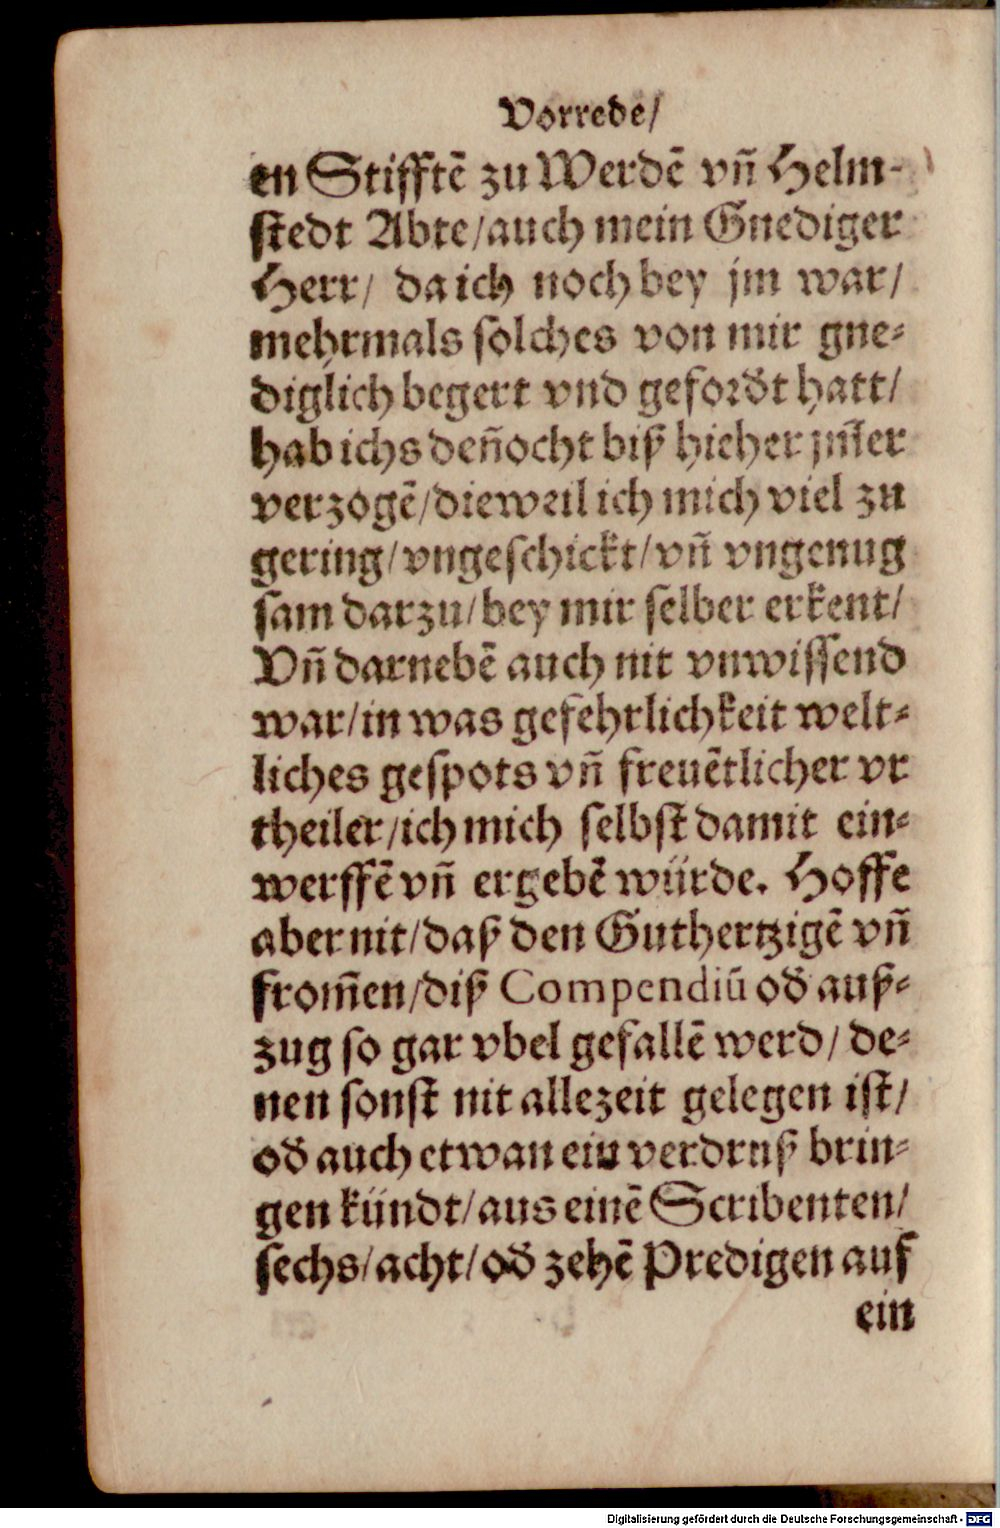 Vorrede/
en Stifftē zu Werdē vñ Helm-
stedt Abte/auch mein Gnediger
Herr/ da ich noch bey jm war/
mehrmals solches von mir gne-
diglich begert vnd gefordt hatt/
hab ichs deñocht biß hieher jm̄er
verzogē/dieweil ich mich viel zu
gering/vngeschickt/vñ vngenug
sam darzu/bey mir selber erkent/
Vñ darnebē auch nit vnwissend
war/in was gefehrlichkeit welt-
liches gespots vñ freuētlicher vr
theiler/ich mich selbst damit ein-
werffē vñ ergebē würde. Hoffe
aber nit/daß den Guthertzigē vñ
from̄en/diß Compendiū od auß-
zug so gar vbel gefallē werd/ de-
nen sonst nit allezeit gelegen ist/
od auch etwan ein verdruß brin-
gen kündt/aus einē Scribenten/
sechs/acht/od zehē Predigen auf
ein
Digitalisierung gefördert durch die Deutsche Forschungsgemeinschaft - DFG